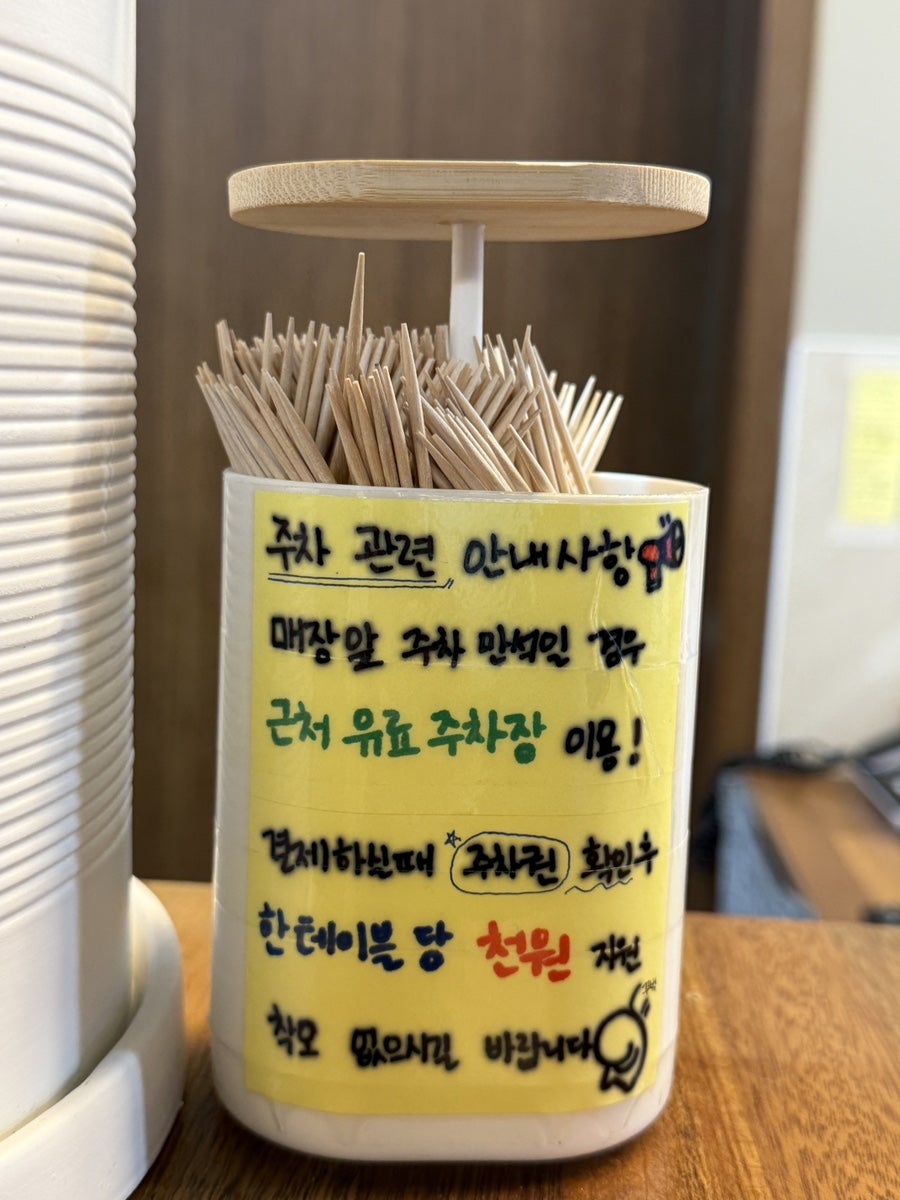 주차 관련 안내사항
매장앞 주차 만석일 경우
근처 유료 주차장 이용!
결제하실때 주차권 확인후
한테이블 당 천원 지원
착오 없으시길 바랍니다